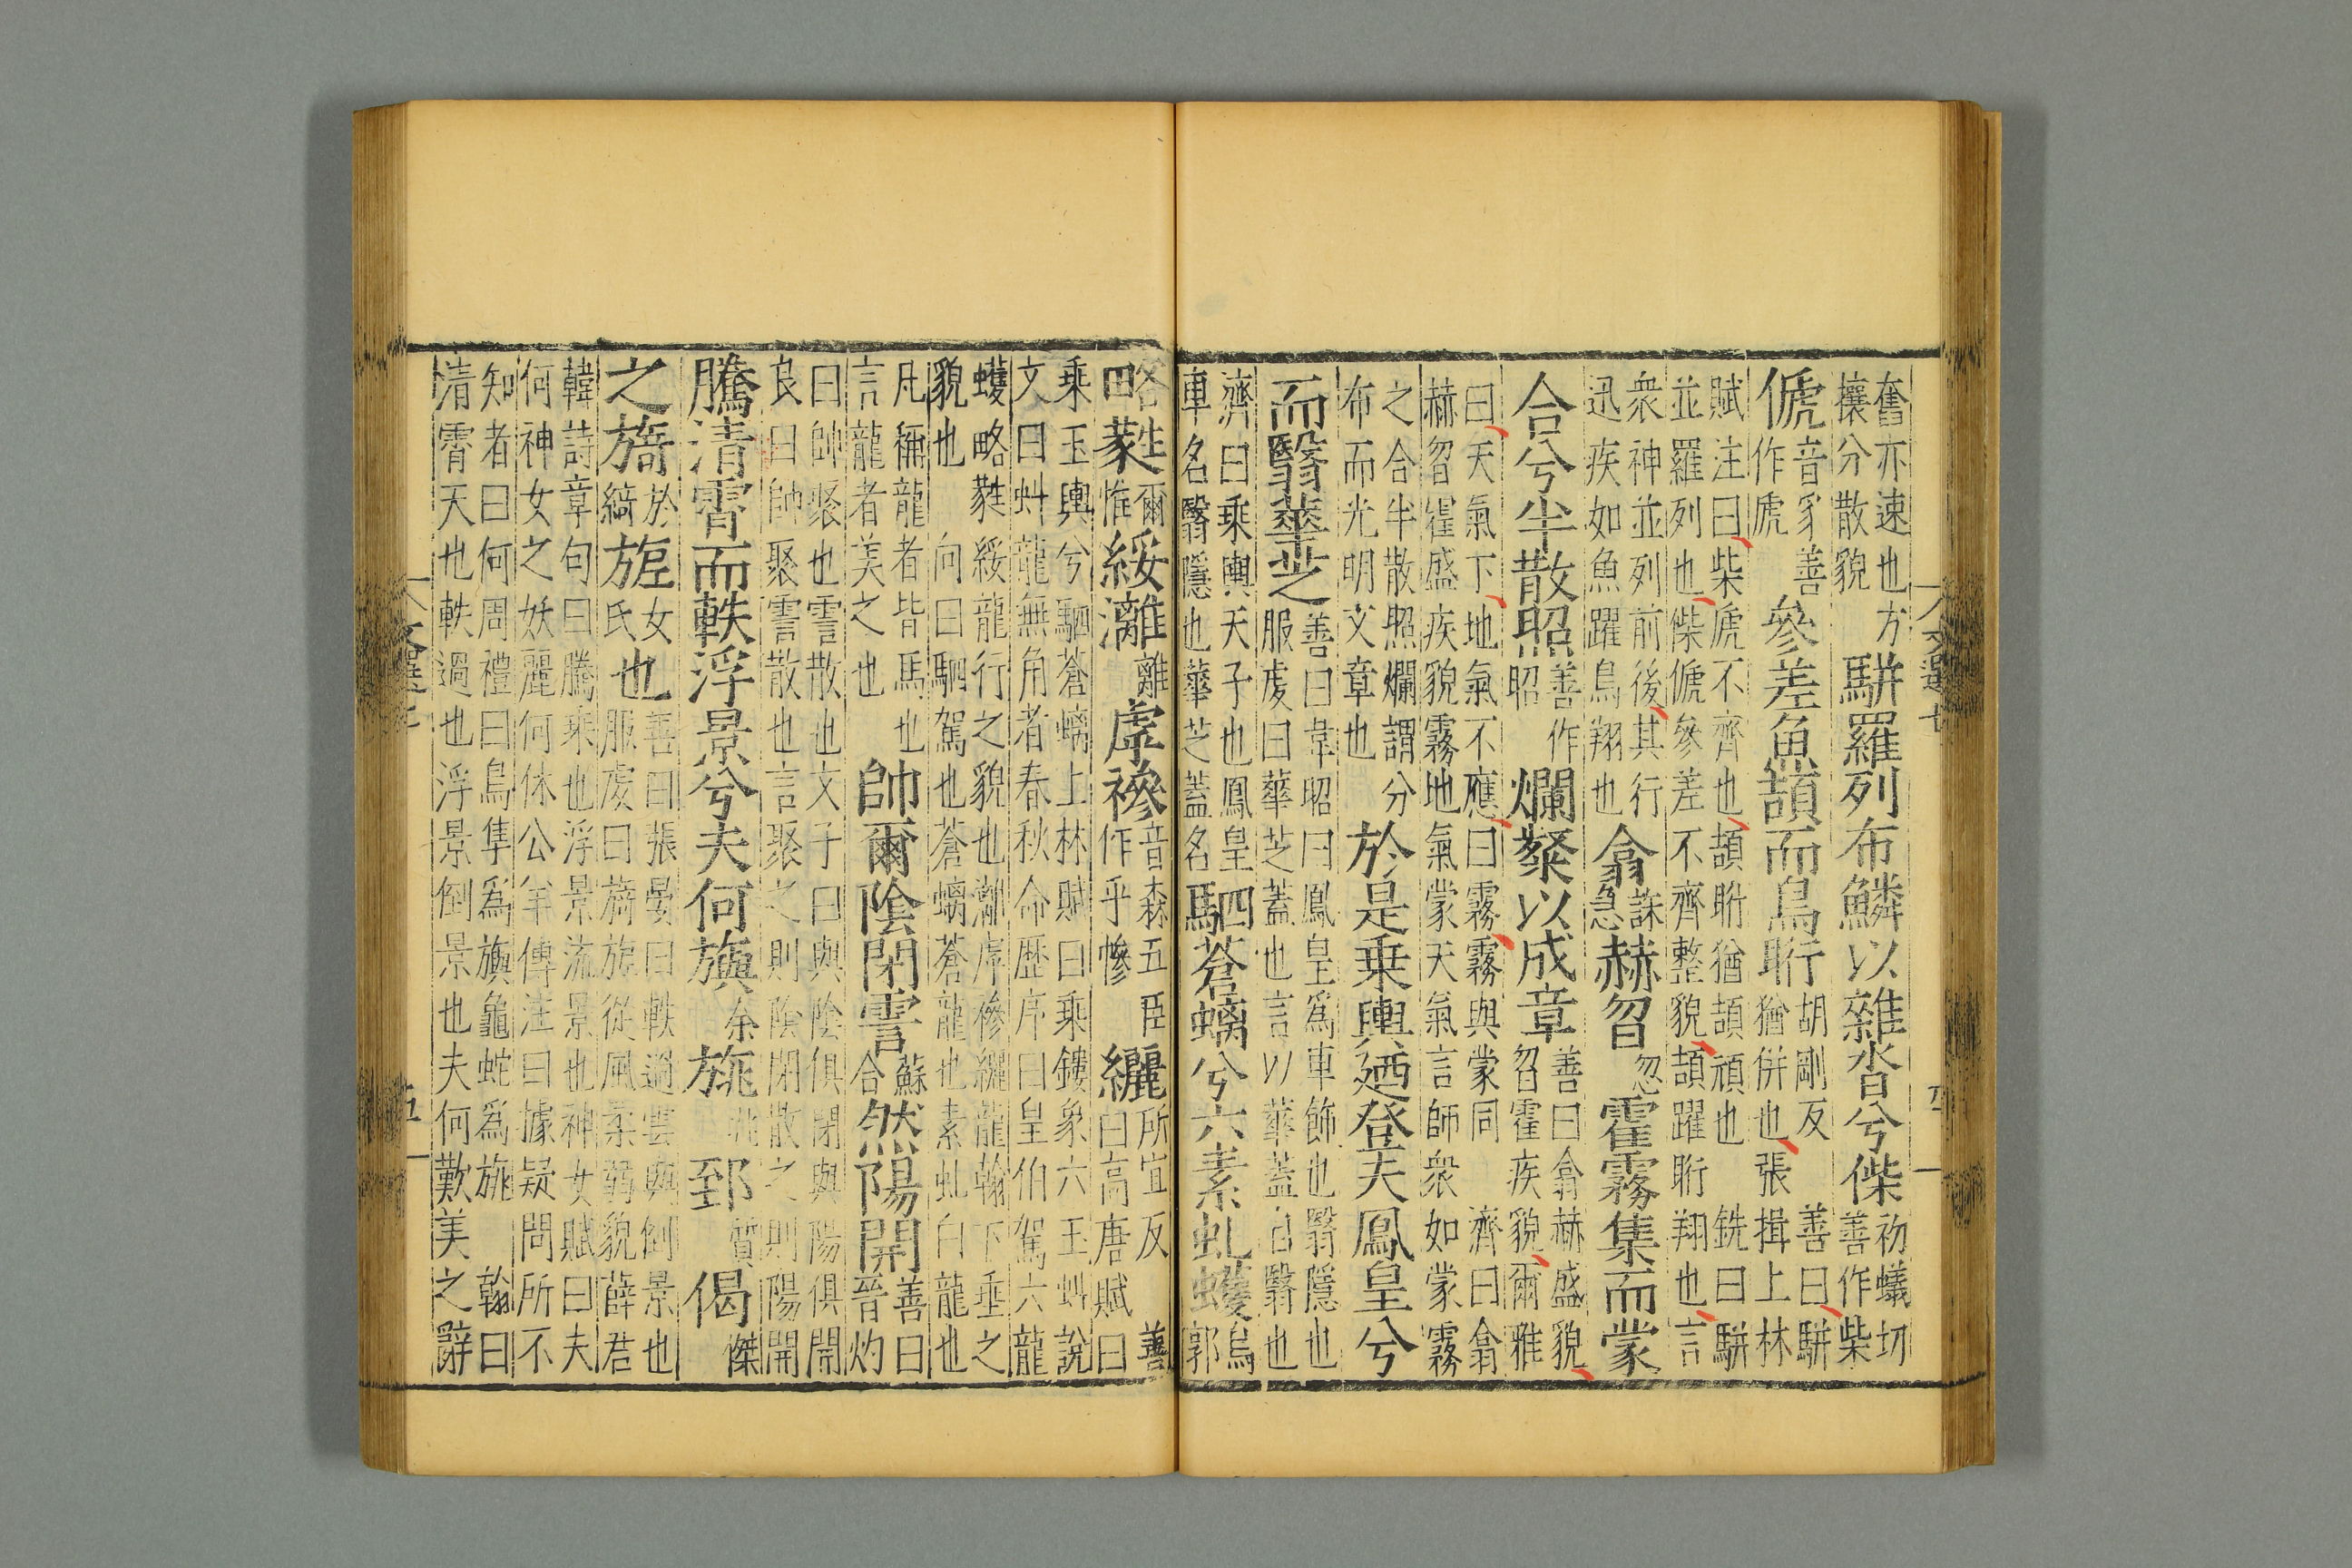 奮亦速也方攘分散貌駢羅列布鱗以雜沓兮偨初蟻切善作柴
傂音豸善作虒參差魚頡而鳥䀪胡剛反善曰駢猶併也張揖上林
賦注曰柴虒不齊也頡䀪猶頡頏也銑曰駢
並羅列也偨傂參差不齊整貌頡躍䀪翔也言
衆神並列前後其行迅疾如魚躍鳥翔也翕誅急赫曶忽霍霧集而蒙
合兮半散照善作昭爛粲以成章善曰翕赫盛貌曶霍疾貌爾雅
曰天氣下地氣不應曰霧霧與蒙同濟曰翕
赫曶霍盛疾貌霧地氣蒙天氣言師衆如蒙霧
之合半散照爛謂分布而光明文章也於是乗輿廼登夫鳳皇兮
而翳華芝善曰韋昭曰鳳皇爲車飾也翳隱也服虔曰華芝蓋也言以華蓋自翳也
濟曰乗輿天子也鳳皇車名翳隱也華芝蓋名駟蒼螭兮六素虬蠖烏郭
略蕤爾惟綏灕離虖襂音森五臣作乎慘纚所宜反善曰高唐賦曰
乗玉輿兮駟蒼螭上林賦曰乗鏤象六玉虯說
文曰虯龍無角者春秋命歷序曰皇伯駕六龍
蠖略蕤綏龍行之貌也灕虖襂纚龍翰下垂之
貌也向曰駟駕也蒼螭蒼龍也素虬白龍也
凡稱龍者皆馬也言龍者美之也帥爾陰閉霅蘇合然陽開善曰晉灼
曰帥聚也霅散也文子曰與陰俱閉與陽俱開
良曰帥聚霅散也言聚之則陰閉散之則陽開
騰清霄而軼浮景兮夫何旟余旐兆郅質偈傑
之旖於綺旎女氏也善曰張晏曰軼過雲與倒景也服虔曰旖旎從風柔弱貌薛君
韓詩章句曰騰乘也浮景流景也神女賦曰夫
何神女之妖麗何休公羊傳注曰據疑問所不
知者曰何周禮曰鳥隼爲旟龜蛇爲旐翰曰
清霄天也軼過也浮景倒景也夫何歎美之辭